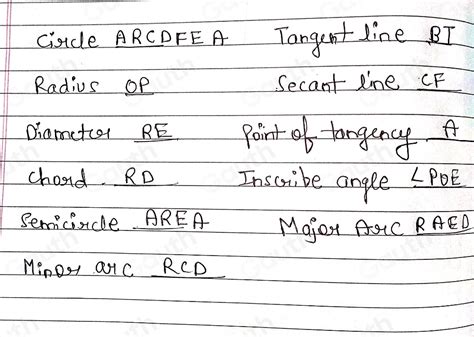 Circle ARCDFEA Tangent line BT
Radius OP Secant line CF
Diameter RE Point of tangency A
Chord RD Inscribe angle ∠POE
Semicircle AREA Major Arc RAED
Minor arc RCD